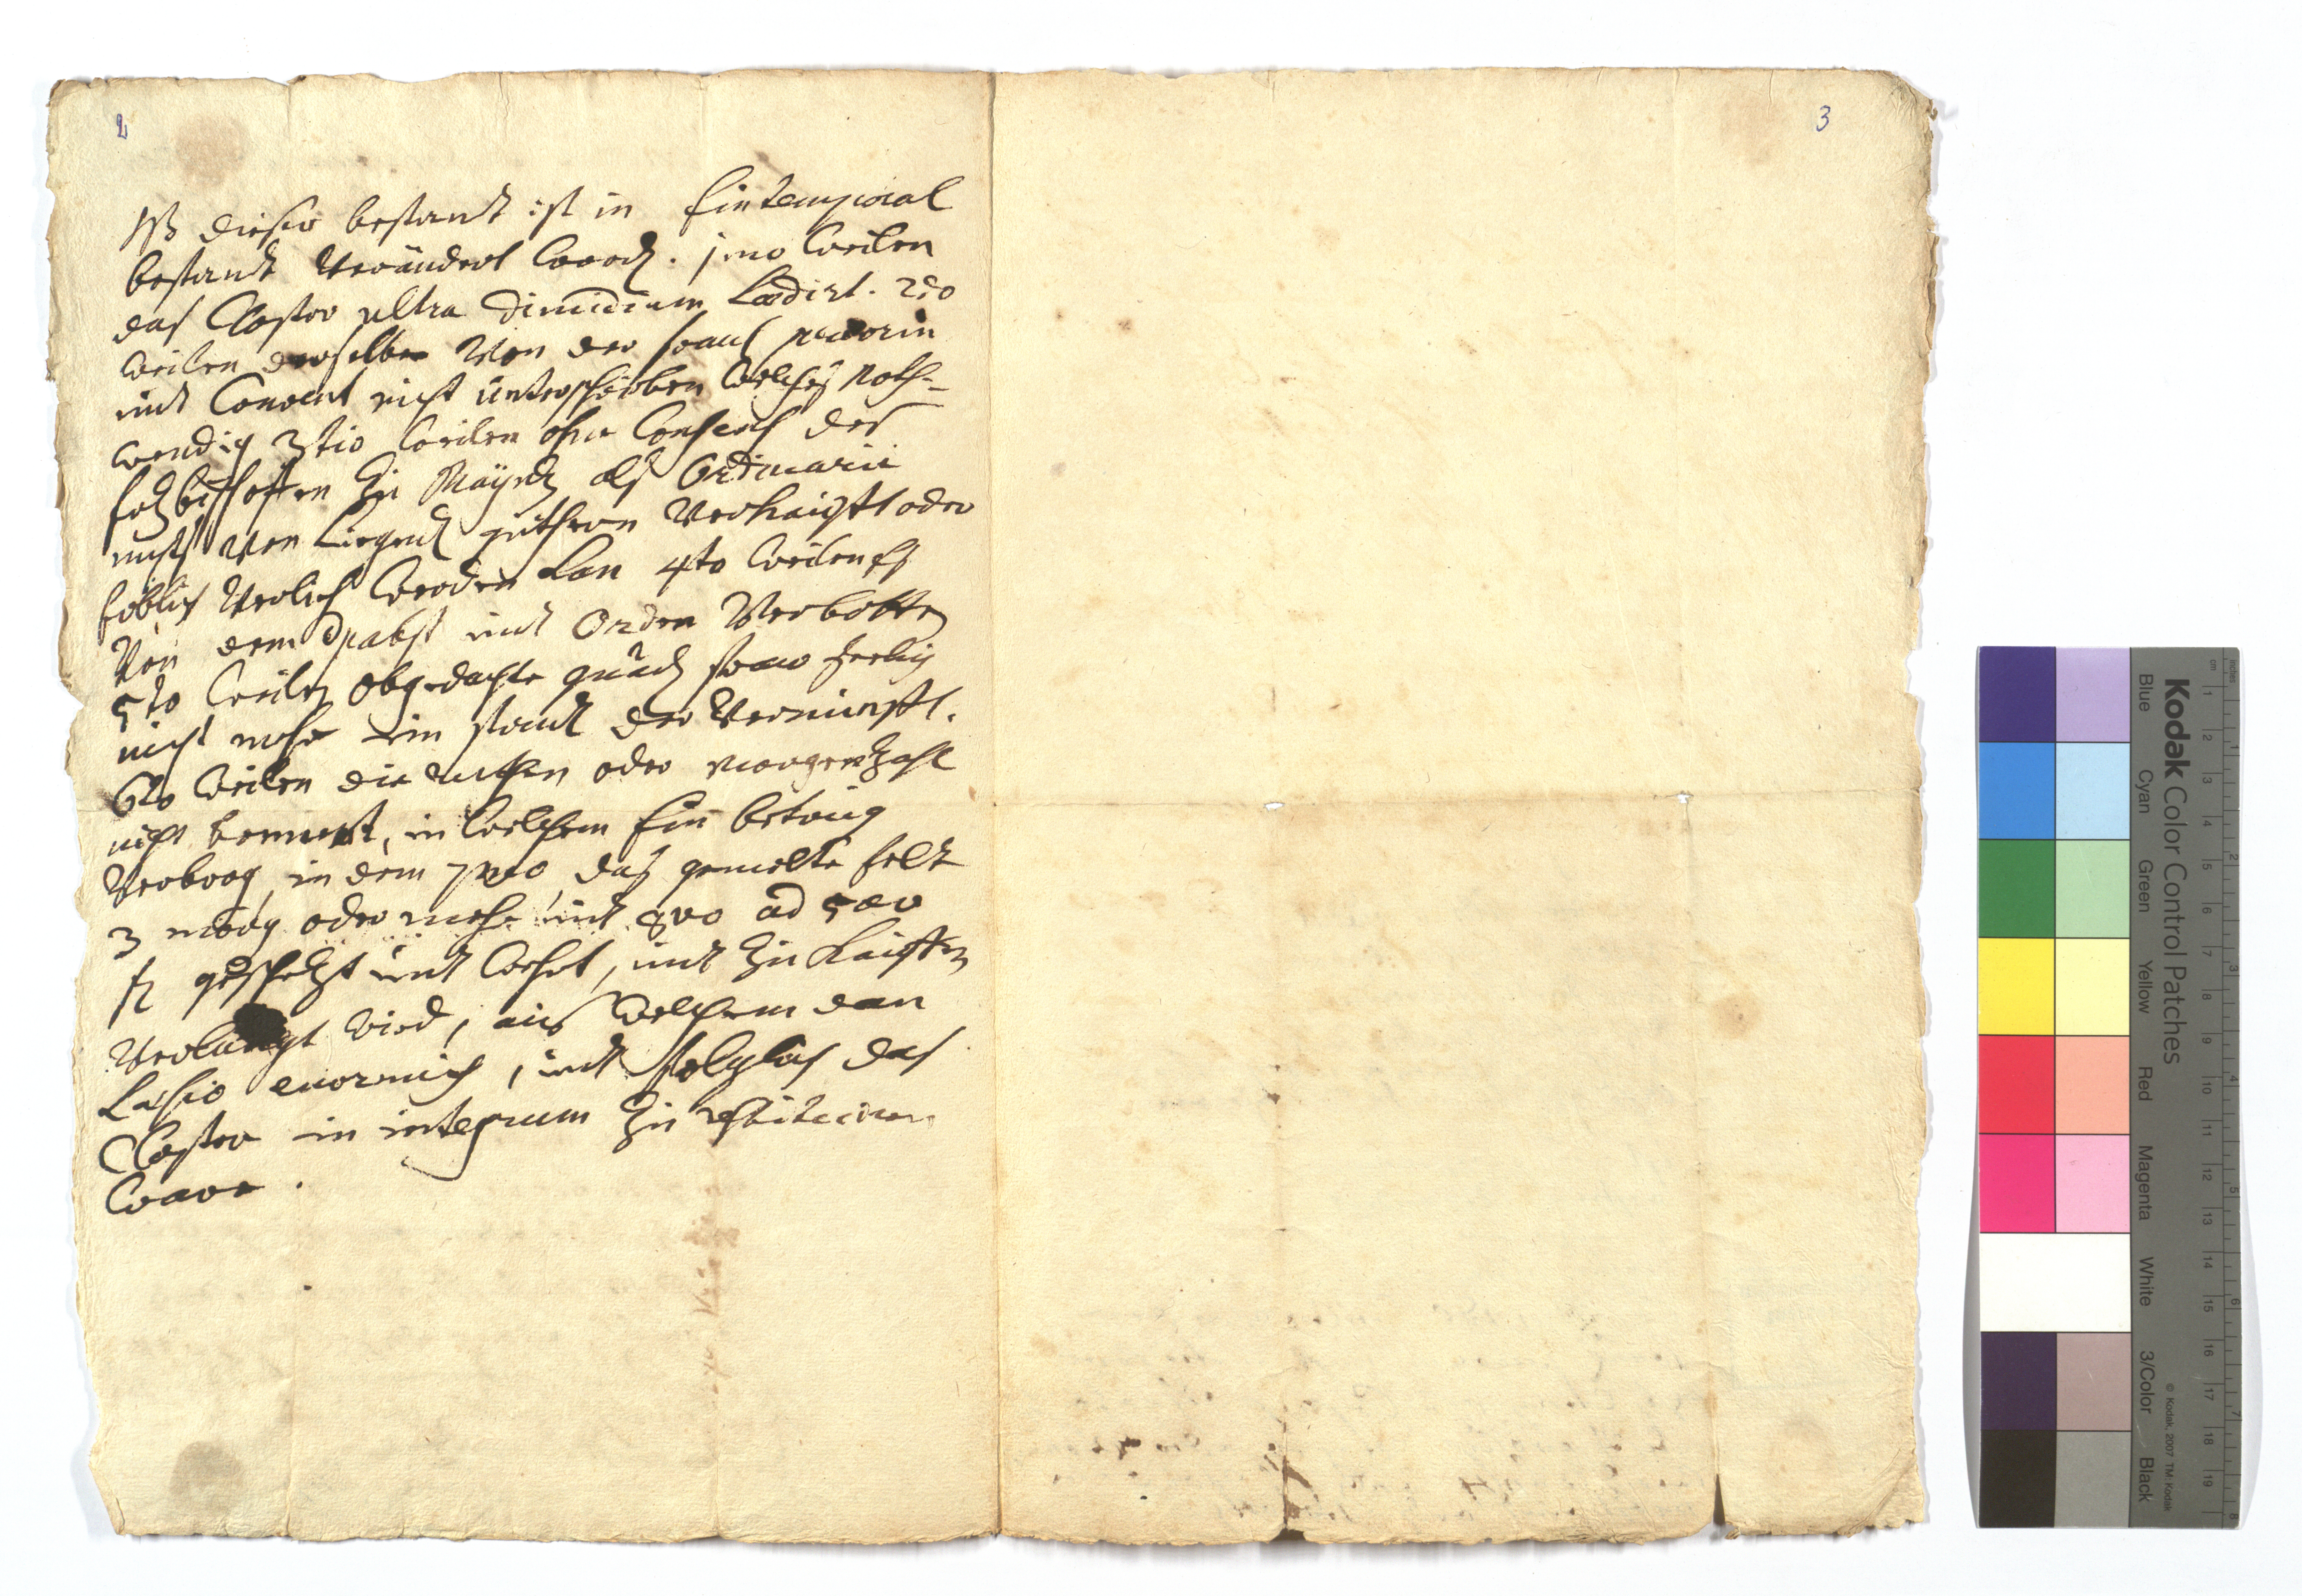 2
3
NB dieser bestandt ist in Ein temporal
bestandt Verändert word. 1mo weilen
das Closter ultra dimidium Lædirt. 2do
weilen derselbe Von der frauw priorin
undt Convent nicht unterschrieben welches noth-
wendig 3tio weilen ohne Consens des
Ertzbischoffen zu Mayntz als Ordinarii
nichts Von Liegend güthern Verkaufft oder
Erblich Verlich werden kan 4to weilen es
Von dem Pabst undt Orden Verbotten
5to weilen obgedachte gnäd frauw
nicht mehr im standt der Vernunfft.
6to weilen die ruthen oder morgenzahl
nicht benennt, in welchem Ein betrug
Verborg, in dem 7mo das gemelte felt
3 morg oder mehr undt 8vo ad 500
fl geschetzt undt wehrt, undt zu Kauffen
Verlangt wird, aus welchem dan
Læsio enormis, undt folglich das
Closter in integrum zu restituiren
were.
Kodak Color Control Patches
Blue Cyan Green Yellow Red Magenta White 3/Color Black
© Kodak, 2007 TM: Kodak
inches 1 2 3 4 5 6 7 8
cm 1 2 3 4 5 6 7 8 9 10 11 12 13 14 15 16 17 18 19